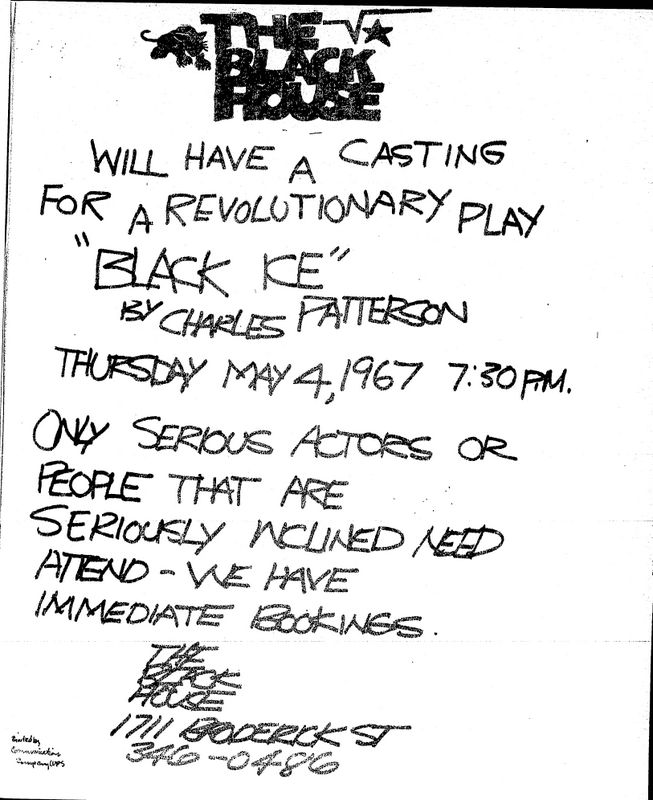 THE
BLACK
HOUSE
WILL HAVE A CASTING
FOR A REVOLUTIONARY PLAY
"BLACK ICE"
BY CHARLES PATTERSON
THURSDAY MAY 4, 1967 7:30 P.M.
ONLY SERIOUS ACTORS OR
PEOPLE THAT ARE
SERIOUSLY INCLINED NEED
ATTEND - WE HAVE
IMMEDIATE BOOKINGS.
THE
BLACK
HOUSE
1711 BRODERICK ST
346-0486
Printed by
Communication
Company UPS